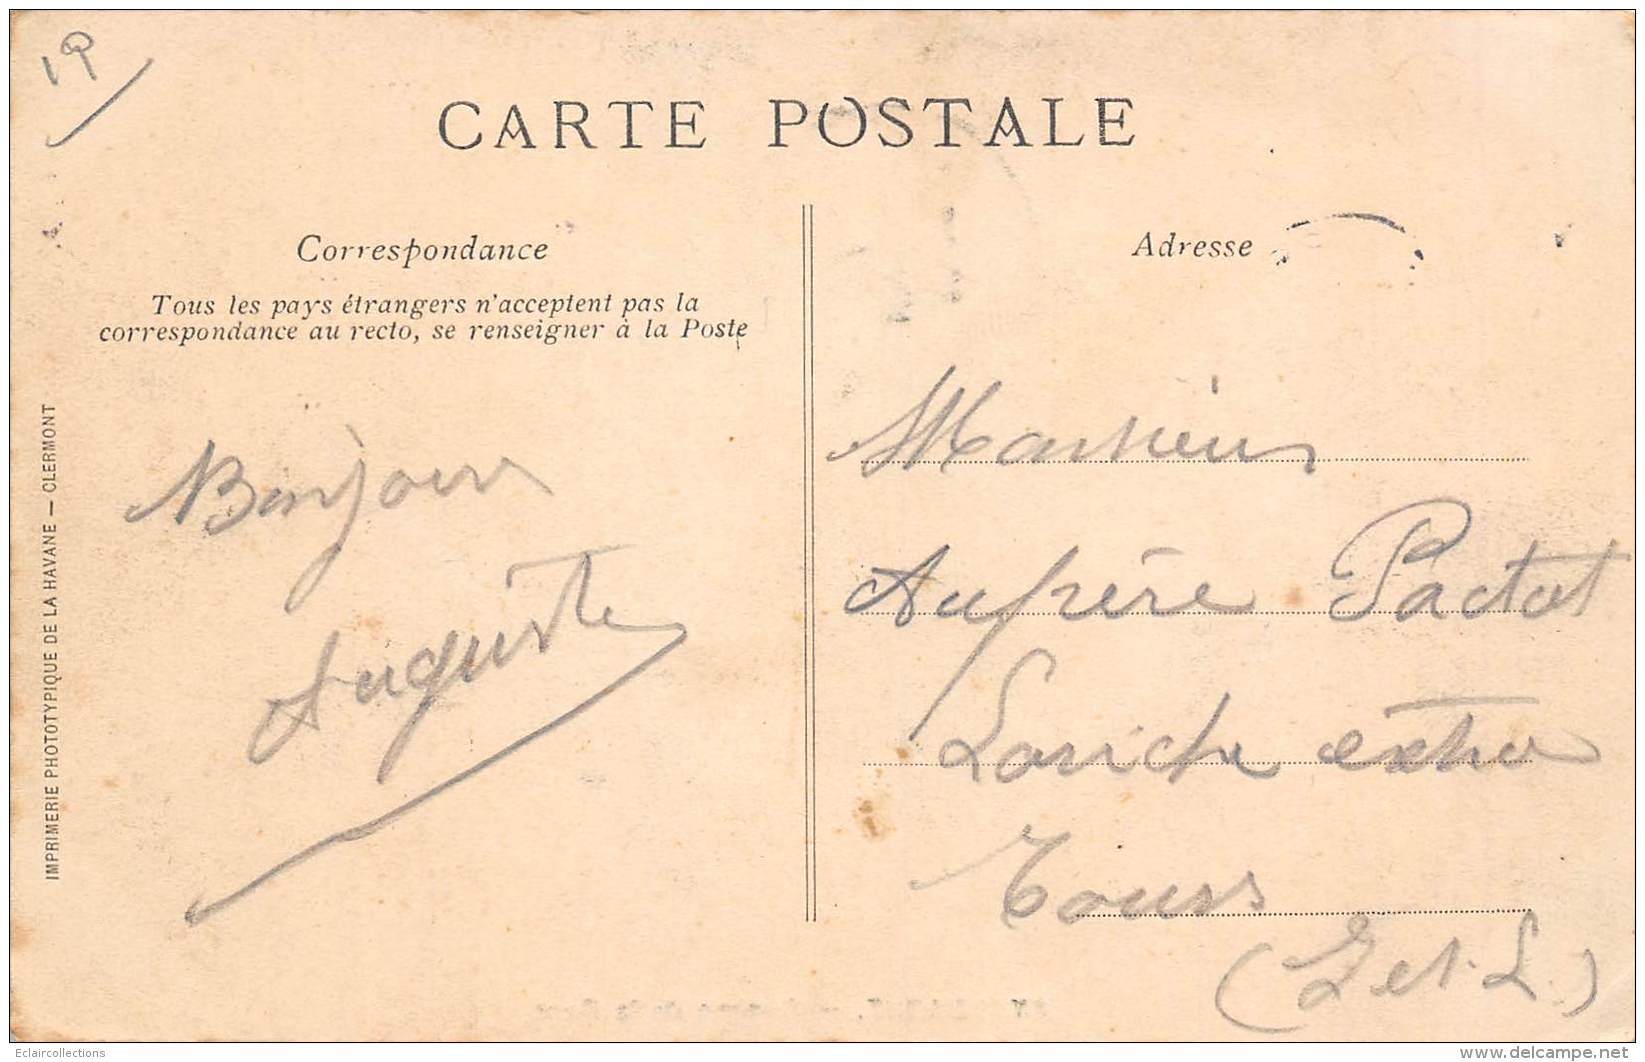 CARTE POSTALE
Correspondance
Tous les pays étrangers n'acceptent pas la
correspondance au recto, se renseigner à la Poste
Bonjour
Auguste
IMPRIMERIE PHOTOTYPIQUE DE LA HAVANE — CLERMONT
Adresse
Monsieur
Aupère Pactat
Lariche extra
Tours
(I et L.)
Eclaircollections
delcampe.net